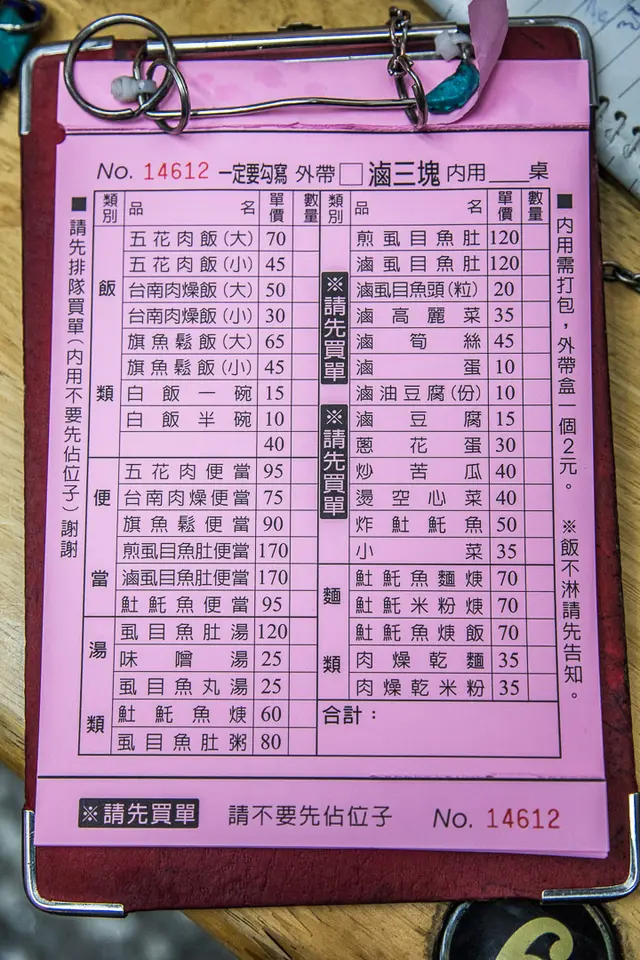 No. 14612 一定要勾寫 外帶 □ 滷三塊 內用___桌
■請先排隊買單(內用不要先佔位子)謝謝
類別 品名 單價 數量
飯類
五花肉飯(大) 70
五花肉飯(小) 45
台南肉燥飯(大) 50
台南肉燥飯(小) 30
旗魚鬆飯(大) 65
旗魚鬆飯(小) 45
白飯一碗 15
白飯半碗 10
40
便當
五花肉便當 95
台南肉燥便當 75
旗魚鬆便當 90
煎虱目魚肚便當 170
滷虱目魚肚便當 170
魠魚便當 95
湯類
虱目魚肚湯 120
味噌湯 25
虱目魚丸湯 25
魠魚焿 60
虱目魚肚粥 80
類別 品名 單價 數量
※請先買單
※請先買單
煎虱目魚肚 120
滷虱目魚肚 120
滷虱目魚頭(粒) 20
滷高麗菜 35
滷筍絲 45
滷蛋 10
滷油豆腐(份) 10
滷豆腐 15
蔥花蛋 30
炒苦瓜 40
燙空心菜 40
炸魠魚 50
小菜 35
麵類
魠魚麵焿 70
魠米粉焿 70
魠魚焿飯 70
肉燥乾麵 35
肉燥乾米粉 35
合計：
■內用需打包，外帶盒一個2元。 ※飯不淋請先告知。
※請先買單 請不要先佔位子 No. 14612